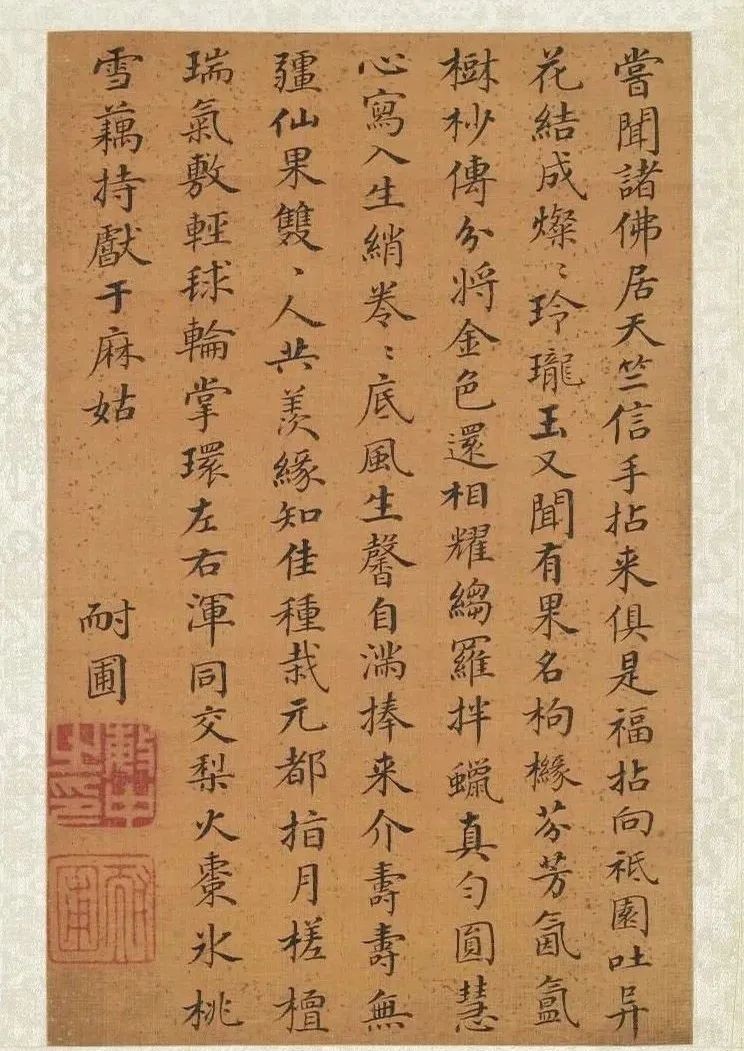 嘗聞諸佛居天竺信手拈来俱是福拈向祗園吐异
花結成燦〻玲瓏玉又聞有果名枸櫞芬芳氤氲
樹杪傳分將金色還相耀縐羅拌蠟真勻圓慧
心寫入生綃卷〻底風生馨自满捧来介壽壽無
疆仙果雙〻人共羨緣知佳種栽元都指月槎檀
瑞氣敷輕毬輪掌環左右渾同交梨火棗氷桃
雪藕持獻于麻姑
耐圃